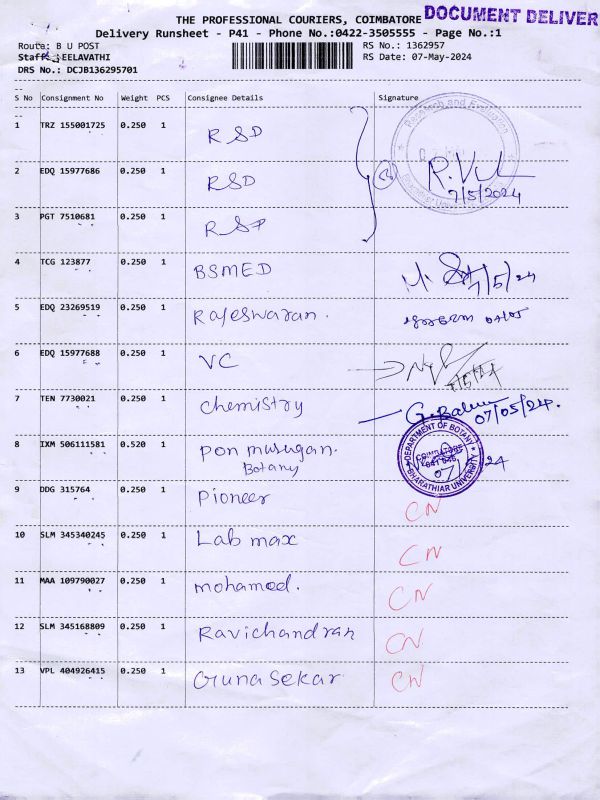 THE PROFESSIONAL COURIERS, COIMBATORE DOCUMENT DELIVER
Delivery Runsheet - P41 - Phone No.:0422-3505555 - Page No.:1
Route: B U POST RS No.: 1362957
Staff: EELAVATHI RS Date: 07-May-2024
DRS No.: DCJB136295701
S No Consignment No Weight PCS Consignee Details Signature
1 TRZ 155001725 0.250 1 RSD
2 EDQ 15977686 0.250 1 RSD R.V
7/5/2024
3 PGT 7510681 0.250 1 RSD
4 TCG 123877 0.250 1 BSMED M. 7/5/24
5 EDQ 23269519 0.250 1 Rajeswaran. 07/05
6 EDQ 15977688 0.250 1 VC
7/5/24
7 TEN 7730021 0.250 1 Chemistry G. Babu
07/05/24.
8 IXM 506111581 0.520 1 pon murugan. DEPARTMENT OF BOTANY
Botany COIMBATORE
BHARATHIAR UNIVERSITY
9 DDG 315764 0.250 1 Pioneer CN
10 SLM 345340245 0.250 1 Lab max CN
11 MAA 109790027 0.250 1 mohamed. CN
12 SLM 345168809 0.250 1 Ravichandran CN
13 VPL 404926415 0.250 1 Gunasekar CN